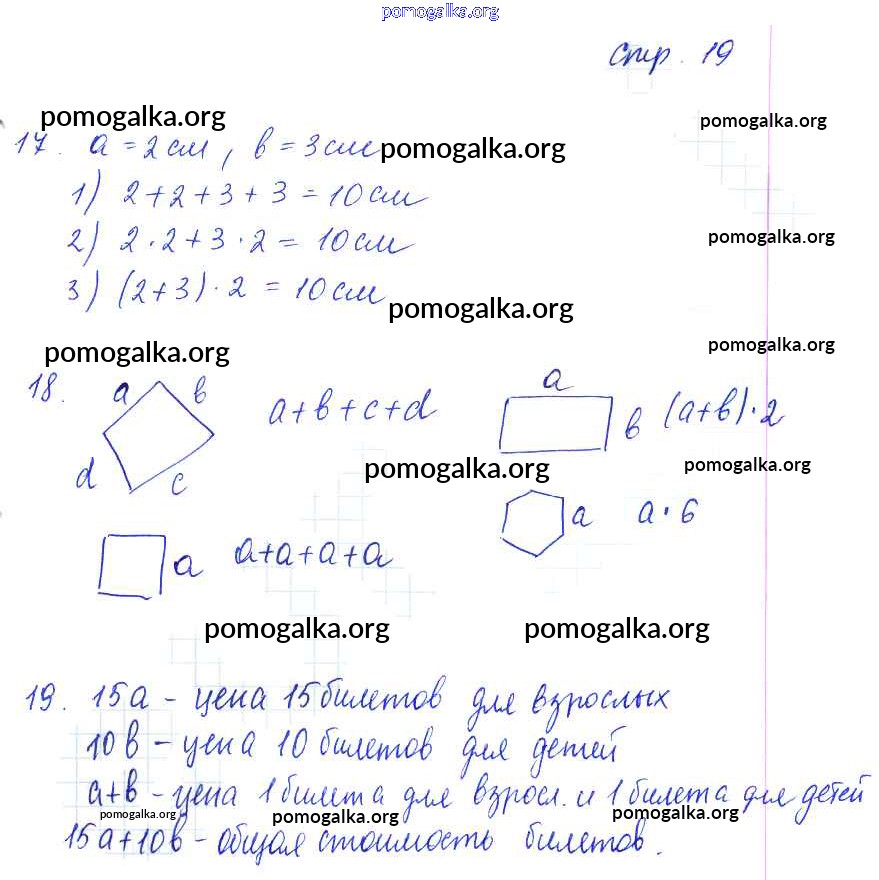 pomogalka.org
стр. 19
pomogalka.org
pomogalka.org
17. a = 2 см, в = 3 см
pomogalka.org
1) 2 + 2 + 3 + 3 = 10 см
2) 2 · 2 + 3 · 2 = 10 см
pomogalka.org
3) (2 + 3) · 2 = 10 см
pomogalka.org
pomogalka.org
pomogalka.org
18. a в d c a + в + c + d
a в (a + в) · 2
pomogalka.org
pomogalka.org
a a + a + a + a
a a · 6
pomogalka.org
pomogalka.org
19. 15a – цена 15 билетов для взрослых
10в – цена 10 билетов для детей
a + в – цена 1 билета для взросл. и 1 билета для детей
pomogalka.org
pomogalka.org
pomogalka.org
15a + 10в – общая стоимость билетов.